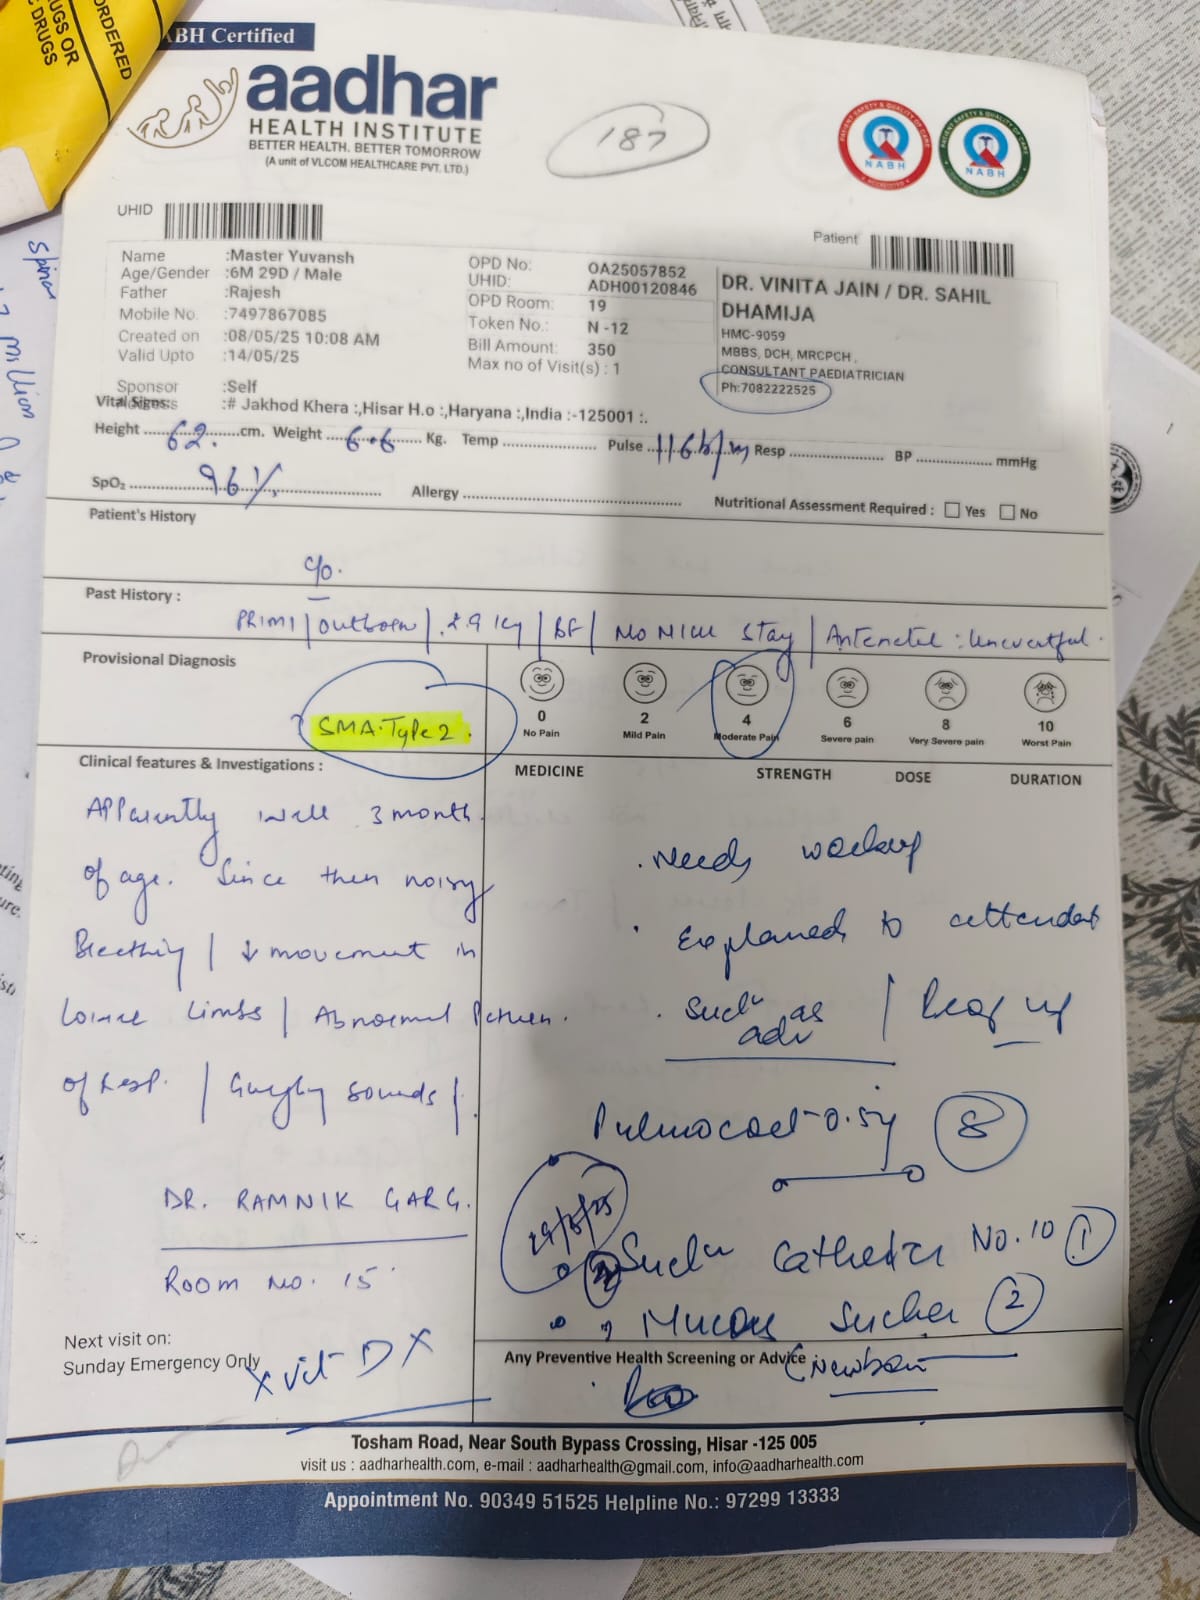 ORDERED
DRUGS OR
DRUGS
NABH Certified
aadhar
HEALTH INSTITUTE
BETTER HEALTH. BETTER TOMORROW
(A unit of VLCOM HEALTHCARE PVT. LTD.)
187
NABH
NABH
UHID
Patient
Name :Master Yuvansh
Age/Gender :6M 29D / Male
Father :Rajesh
Mobile No. :7497867085
Created on :08/05/25 10:08 AM
Valid Upto :14/05/25
Sponsor :Self
:# Jakhod Khera :,Hisar H.o :,Haryana :,India :-125001 :.
OPD No: OA25057852
UHID: ADH00120846
OPD Room: 19
Token No.: N -12
Bill Amount: 350
Max no of Visit(s) : 1
DR. VINITA JAIN / DR. SAHIL
DHAMIJA
HMC-9059
MBBS, DCH, MRCPCH .
CONSULTANT PAEDIATRICIAN
Ph:7082222525
Vital Signs:
Height 62. cm. Weight 6.6 Kg. Temp Pulse 116b/m Resp BP mmHg
SpO₂ 96% Allergy Nutritional Assessment Required : Yes No
Patient's History
c/o.
Past History :
PRIMI / Outborn / 2.9 kg / BF / No NICU stay / Antenatal : Uneventful.
Provisional Diagnosis
SMA Type 2.
0 2 4 6 8 10
No Pain Mild Pain Moderate Pain Severe pain Very Severe pain Worst Pain
Clinical features & Investigations :
MEDICINE STRENGTH DOSE DURATION
Apparently well 3 month
of age. Since then noisy
Breathing / ↓ movement in
lower limbs / Abnormal Pattern.
of resp. / Gurgly sounds /.
DR. RAMNIK GARG.
ROOM NO. 15
. Needs workup
. Explained to attendant
. Such as adv /
8
29/5/25
Catheter No. 10 1
Mucus Sucker 2
(Newborn
Next visit on:
Sunday Emergency Only
Any Preventive Health Screening or Advice
Tosham Road, Near South Bypass Crossing, Hisar -125 005
visit us : aadharhealth.com, e-mail : aadharhealth@gmail.com, info@aadharhealth.com
Appointment No. 90349 51525 Helpline No.: 97299 13333